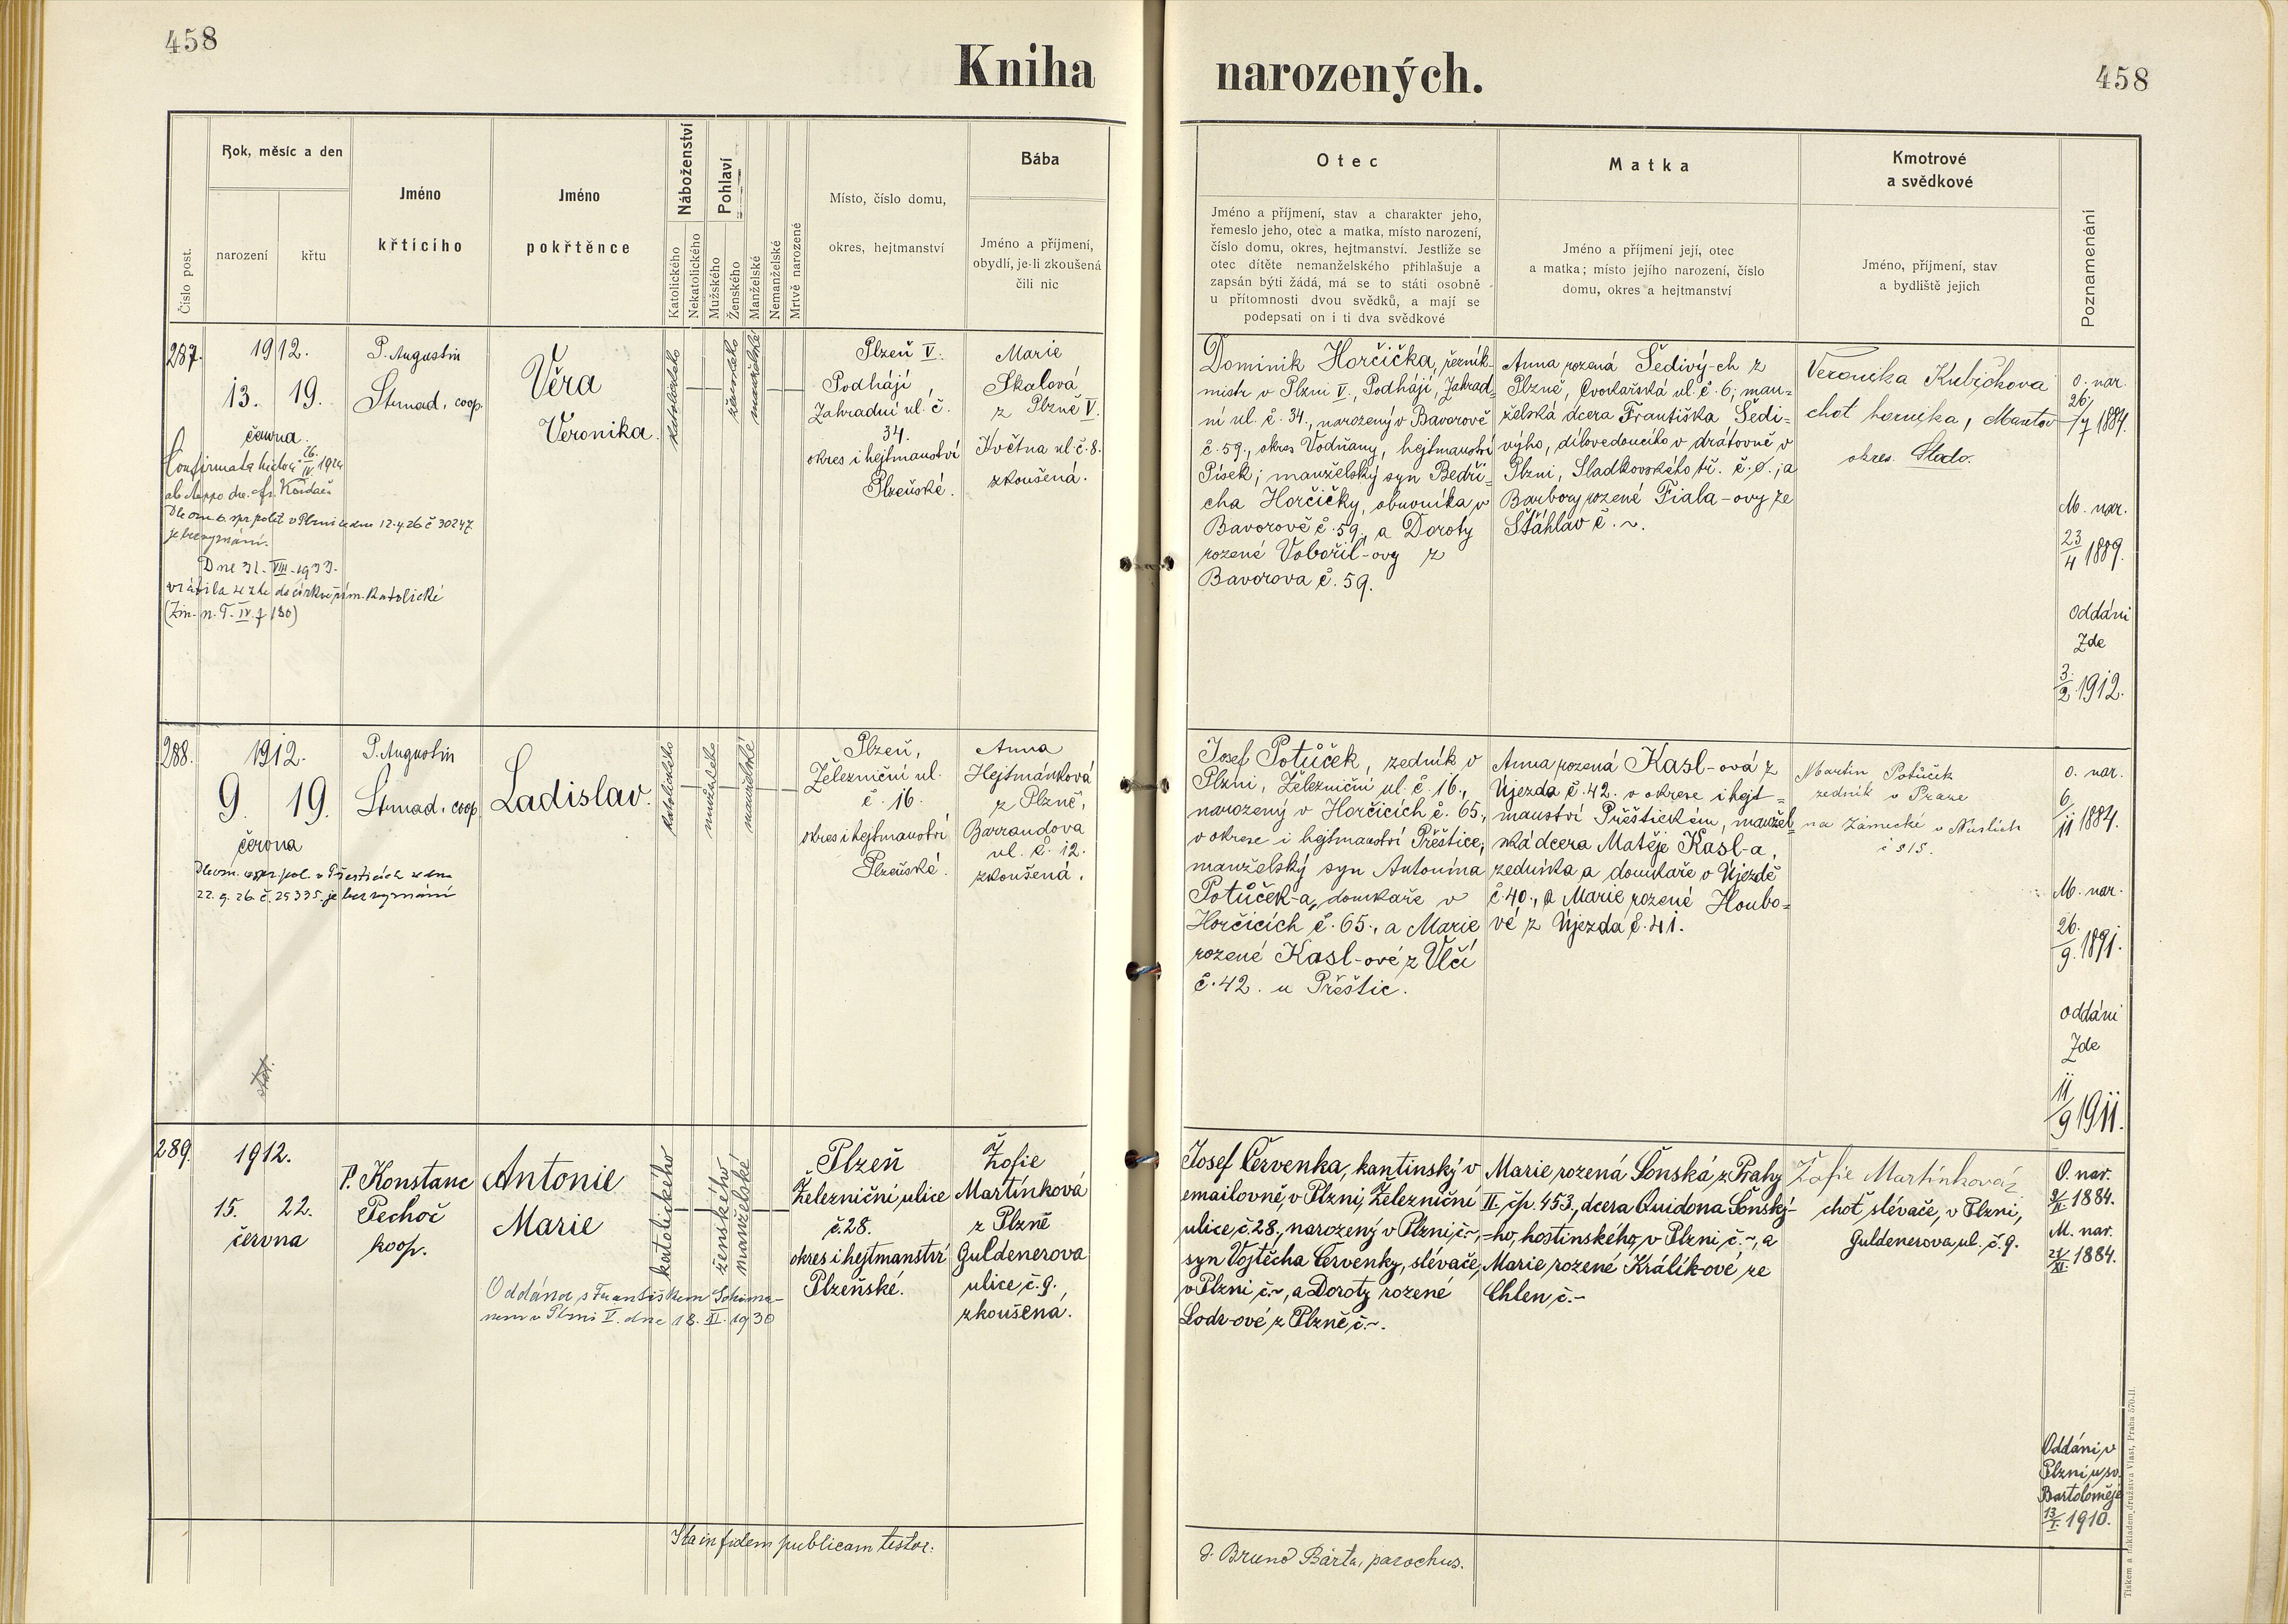 458
Kniha narozených.
458
Číslo post.
Rok, měsíc a den
narození
křtu
Jméno
křtícího
Jméno
pokřtěnce
Náboženství
Katolického
Nekatolického
Pohlaví
Mužského
Ženského
Manželské
Nemanželské
Mrtvě narozené
Místo, číslo domu,
okres, hejtmanství
Bába
Jméno a příjmení,
obydlí, je-li zkoušená
čili nic
Otec
Jméno a příjmení, stav a charakter jeho,
řemeslo jeho, otec a matka, místo narození,
číslo domu, okres, hejtmanství. Jestliže se
otec dítěte nemanželského přihlašuje a
zapsán býti žádá, má se to státi osobně
u přítomnosti dvou svědků, a mají se
podepsati on i ti dva svědkové
Matka
Jméno a příjmení její, otec
a matka; místo jejího narození, číslo
domu, okres a hejtmanství
Kmotrové
a svědkové
Jméno, příjmení, stav
a bydliště jejich
Poznamenání
287.
1912.
13. 19.
června.
Confirmata 26. IV 1924
Dle ozn. o. spr. polit v Plzni ze dne 12.4.26 č 30247
je bez vyznání.
Dne 31. VIII. 1933.
vrátila se zde do církve řím. katolické
P. Augustin
Strnad, coop.
Věra
Veronika.
katolického
ženského
manželské
Plzeň V.
Podhájí,
Zahradní ul. č.
34.
okres i hejtmanství
Plzeňské.
Marie
Skalová
z Plzně V.
Května ul. č. 8.
zkoušená.
Dominik Horčička, řezník-
mistr v Plzni V., Podhájí, Zahrad-
ní ul. č. 34., narozený v Bavorově
č. 59., okres Vodňany, hejtmanství
Písek; manželský syn Bedři-
cha Horčičky, obuvníka v
Bavorově č. 59., a Doroty
rozené Vobořil-ovy z
Bavorova č. 59.
Anna rozená Šedivý-ch z
Plzně, Cvokařská ul. č. 6; man-
želská dcera Františka Šedi-
výho, dílovedoucího v drátovně v
Plzni, Sladkovského tř. č. ; a
Barbory rozené Fiala-ovy ze
Šťáhlav č. ~.
Veronika Kubíchova
choť horníka, Mantov
okres Stodo.
o. nar.
26/7 1884.
M. nar.
23/4 1889.
Oddáni
Zde
3./2. 1912.
288.
1912.
9. 19.
června
22. 9. 26. č. 25335. je bez vyznání
P. Augustin
Strnad, coop.
Ladislav.
katolického
mužského
manželské
Plzeň,
Železniční ul.
č. 16.
okres i hejtmanství
Plzeňské.
Anna
Hejtmánková
z Plzně,
Barrandova
ul. č. 12.
zkoušená.
Josef Potůček, zedník v
Plzni, Železniční ul. č. 16.,
narozený v Horčicích č. 65.,
v okrese i hejtmanství Přeštice;
manželský syn Antonína
Potůček-a, domkaře v
Horčicích č. 65., a Marie
rozené Kasl-ové z Vlčí
č. 42. u Přeštic.
Anna rozená Kasl-ová z
Újezda č. 42. v okrese i hejt-
manství Přeštickém, manžel-
ská dcera Matěje Kasl-a,
zedníka a domkaře v Újezdě
č. 40., a Marie rozené Houbo-
vé z Újezda č. 41.
Martin Potůček
zedník v Praze
na Zámecké v Nuslích
č 515.
o. nar.
6./11 1884.
M. nar.
26./9. 1891.
oddáni
Zde
11/9 1911.
289.
1912.
15. 22.
června
P. Konstanc
Pechoč
koop.
Antonie
Marie
Oddána s Františkem
nem v Plzni V. dne 18. II. 1930
katolického
ženského
manželské
Plzeň
Železniční ulice
č. 28.
okres i hejtmanství
Plzeňské.
Žofie
Martínková
z Plzně
Guldenerova
ulice č. 9.,
zkoušená.
Josef Červenka, kantinský v
emailovně, v Plzni, Železniční
ulice, č. 28., narozený v Plzni č. ~,
syn Vojtěcha Červenky, slévače,
v Plzni č. ~, a Doroty rozené
Lodr-ové z Plzně, č. ~.
Marie rozená Šonská, z Prahy
II. čp. 453., dcera Quidona Šonský-
-ho, hostinského, v Plzni č. ~, a
Marie rozené Králík-ové ze
Chlen č. ~
Žofie Martínková,
choť slévače, v Plzni,
Guldenerova ul. č. 9.
O. nar.
1884.
M. nar.
1884.
Oddáni, v
Plzni, u sv.
Bartoloměje
13/I. 1910.
Ita in fidem publicam testor:
P. Bruno Bárta, parochus.
Tiskem a nákladem družstva Vlast, Praha 570-II.